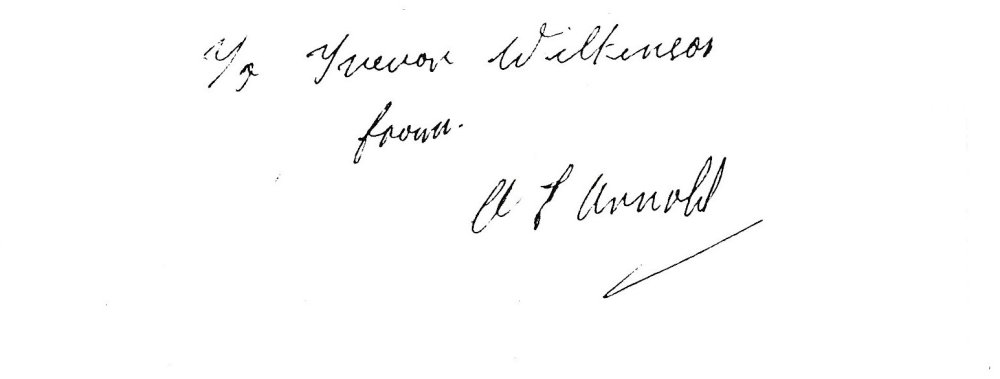 To Trevor Wilkinson
from.
A L Arnold